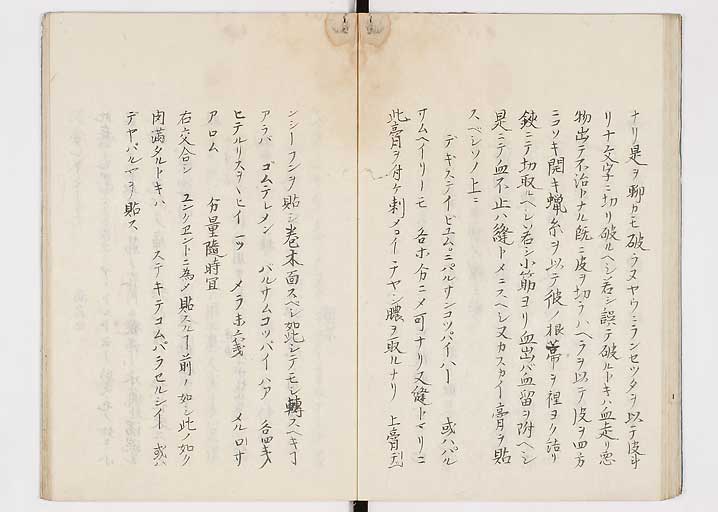 ナリ是ヲ聊カモ破ラヌヤウニランセツタヲ以テ皮斗
リナ文字ニ切リ破ルヘシ若シ誤テ破ルトキハ血走リ悪
物出テ不治トナル既ニ皮ヲ切ラハヘラヲ以テ皮ヲ四方
ニコソキ開キ蠟糸ヲ以テ彼ノ根蔕ヲ裡ヨク詰リ
鋏ニテ切取ルヘシ若シ小筋ヨリ血出バ血留ヲ附ヘシ
是ニテ血不止ハ縫トメニスヘシ又カスカイ膏ヲ貼
スベシソノ上ニ
テキステイヒエム。ニバルサンコッパイハー 或ハバル
サムヘイリーモ 各ホ分ニメ可ナリ又縫トマリニ
此膏ヲ付ケ刺メコイニテヤシ膿ヲ取ルナリ 上膏
ンシーフンヲ貼シ巻木面スベシ如此シテモシ轉スヘキ
アラバ ゴムテレメン バルサムコッパイハア 各四戔
ヒテルリスター、ヒイ 一ツ メラホ六戔 メルロサ
アロム 分量隨時宜
右交合シ ユンケエントニ為メ貼スル丁前ノ如シ此ノ如ク
肉満タルトキハ ステキテコムバラセルシイー 或ハ
デヤバルヤヲ貼ス